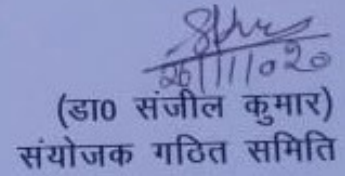 26/11/020
(डा0 संजील कुमार)
संयोजक गठित समिति